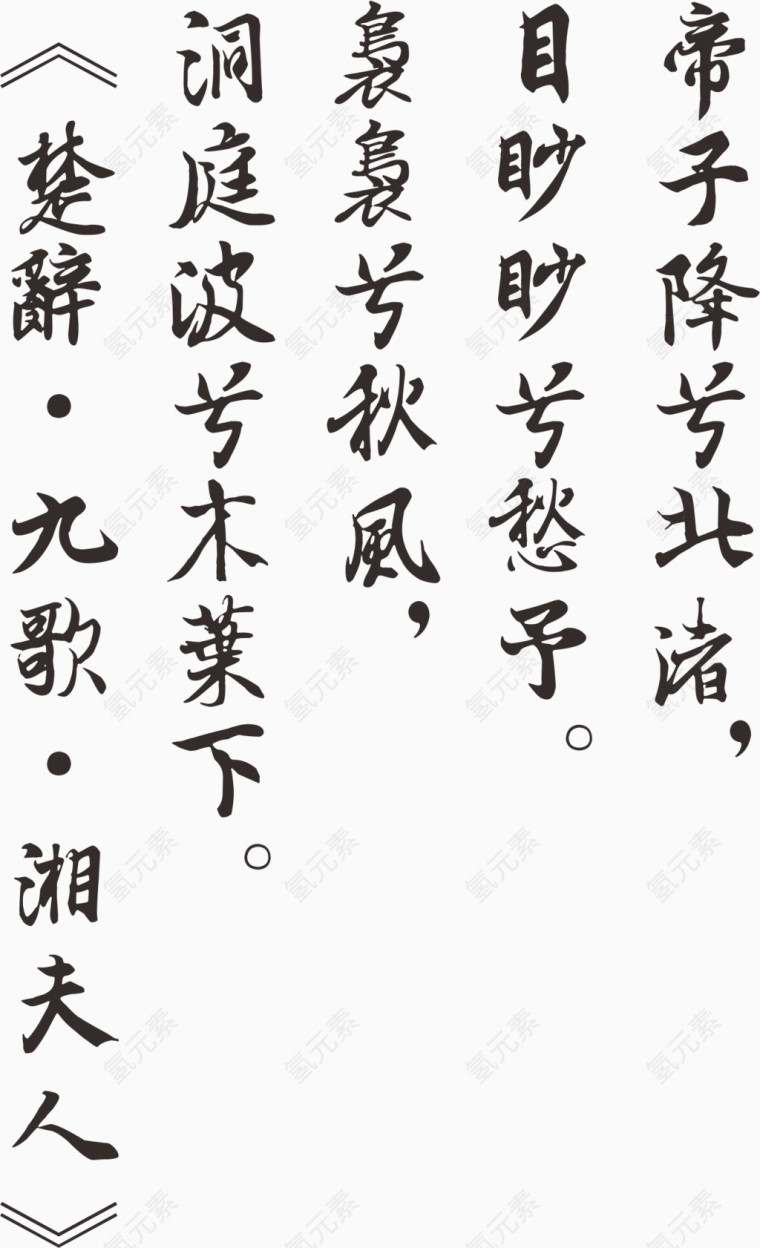 帝子降兮北渚，
目眇眇兮愁予。
袅袅兮秋風，
洞庭波兮木葉下。
《楚辭·九歌·湘夫人》
氢元素